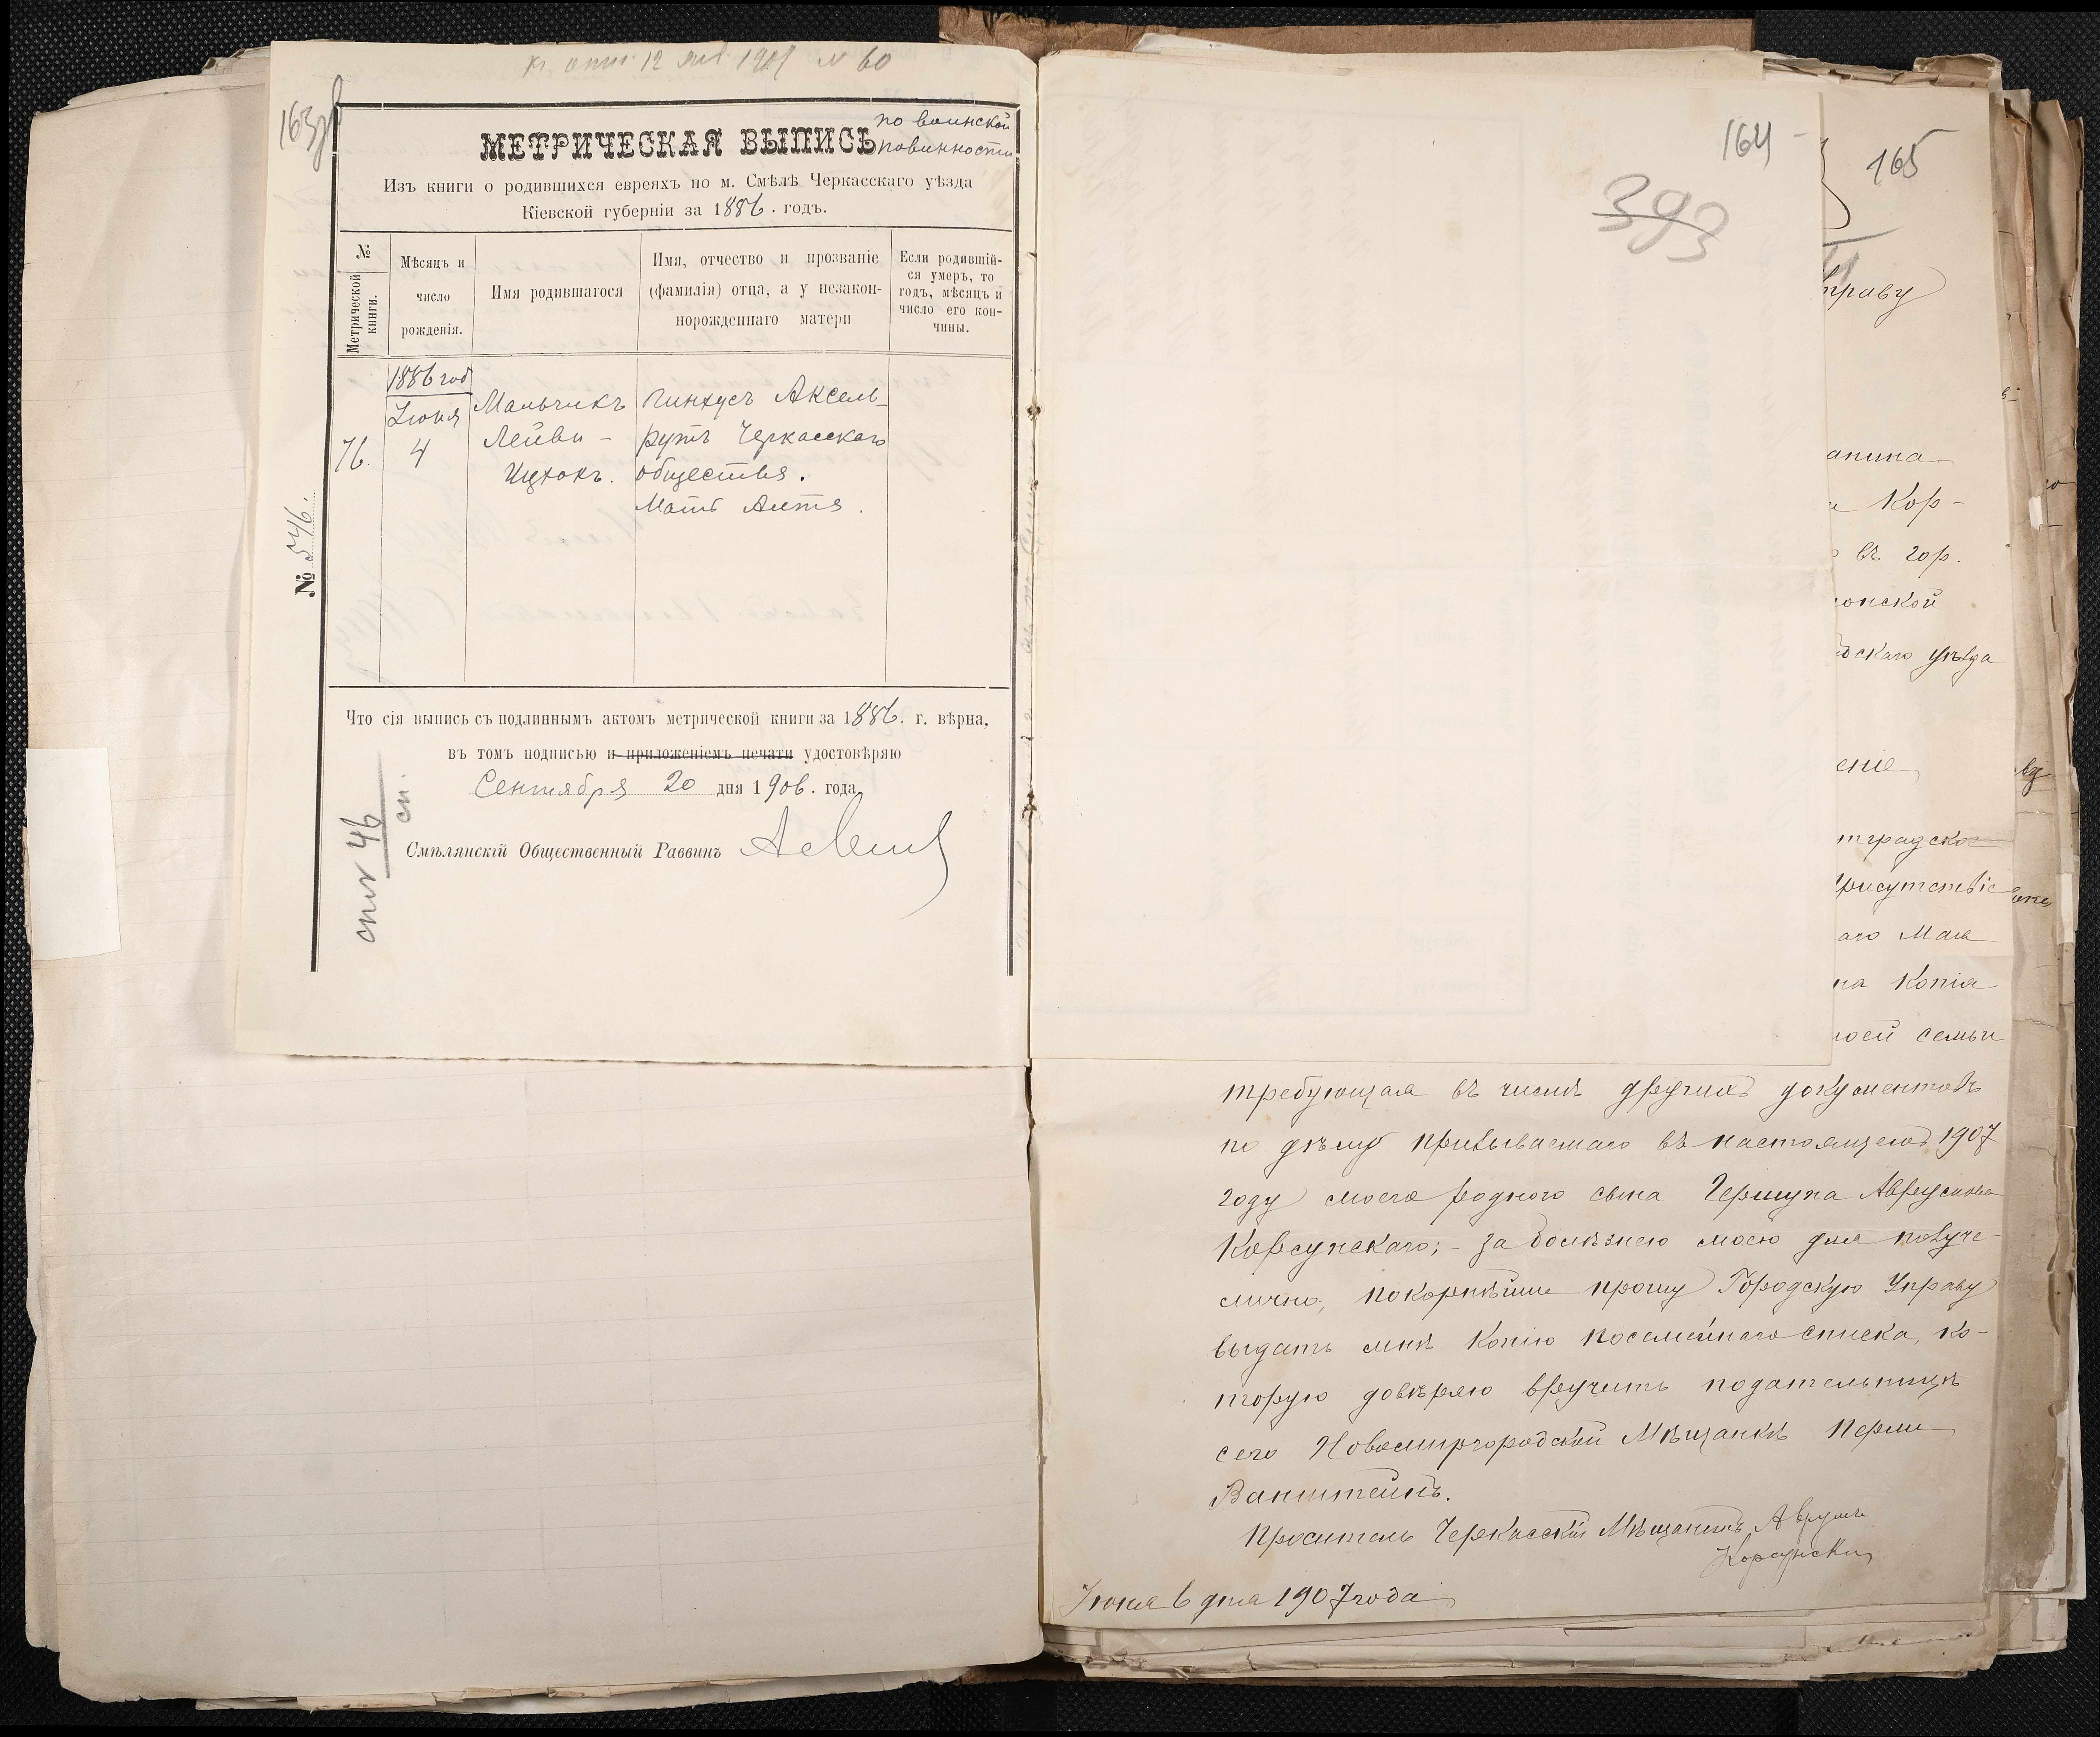 12 янв. 1907 № 60
163 об
МЕТРИЧЕСКАЯ ВЫПИСЬ
по воинской
повинности
Изъ книги о родившихся евреяхъ по м. Смѣлѣ Черкасскаго уѣзда
Кіевской губерніи за 1886. годъ.
№
Метрической
книги.
Мѣсяцъ и
число
рожденія.
Имя родившагося
Имя, отчество и прозваніе
(фамилія) отца, а у незакон-
норожденнаго матери
Если родившій-
ся умеръ, то
годъ, мѣсяцъ и
число его кон-
чины.
76.
1886 год
Іюня
4
Мальчикъ
Лейви-
Ицхокъ.
Пинхусъ Аксель-
рутъ Черкасскаго
общества.
Мать Аитя.
№ 546.
Что сія выпись съ подлиннымъ актомъ метрической книги за 1886. г. вѣрна,
въ томъ подписью и приложеніемъ печати удостовѣряю
Сентября 20 дня 1906. года
Смѣлянскій Общественный Раввинъ
46
сп.
164
393
165
праву
анина
Кор-
въ гор.
онской
скаго уѣзда
ение
тградско
Присутствіе
аго Мая
на копія
моей семьи
требующая въ числѣ другихъ документовъ
по дѣлу призываемаго въ настоящемъ 1907
году моего роднаго сына Гершуна Аврумова
Корсунскаго; - за болѣзнею моею для получе-
лично, покорнѣйше прошу Городскую Управу
выдать мнѣ копію посемейнаго списка, ко-
торую довѣряю вручить подательницѣ
сего Новомиргородской Мѣщанкѣ Перли
Ванштейнъ.
Проситель Черкасскій Мѣщанинъ Аврумъ
Корсунскій
Іюня 6 дня 1907 года